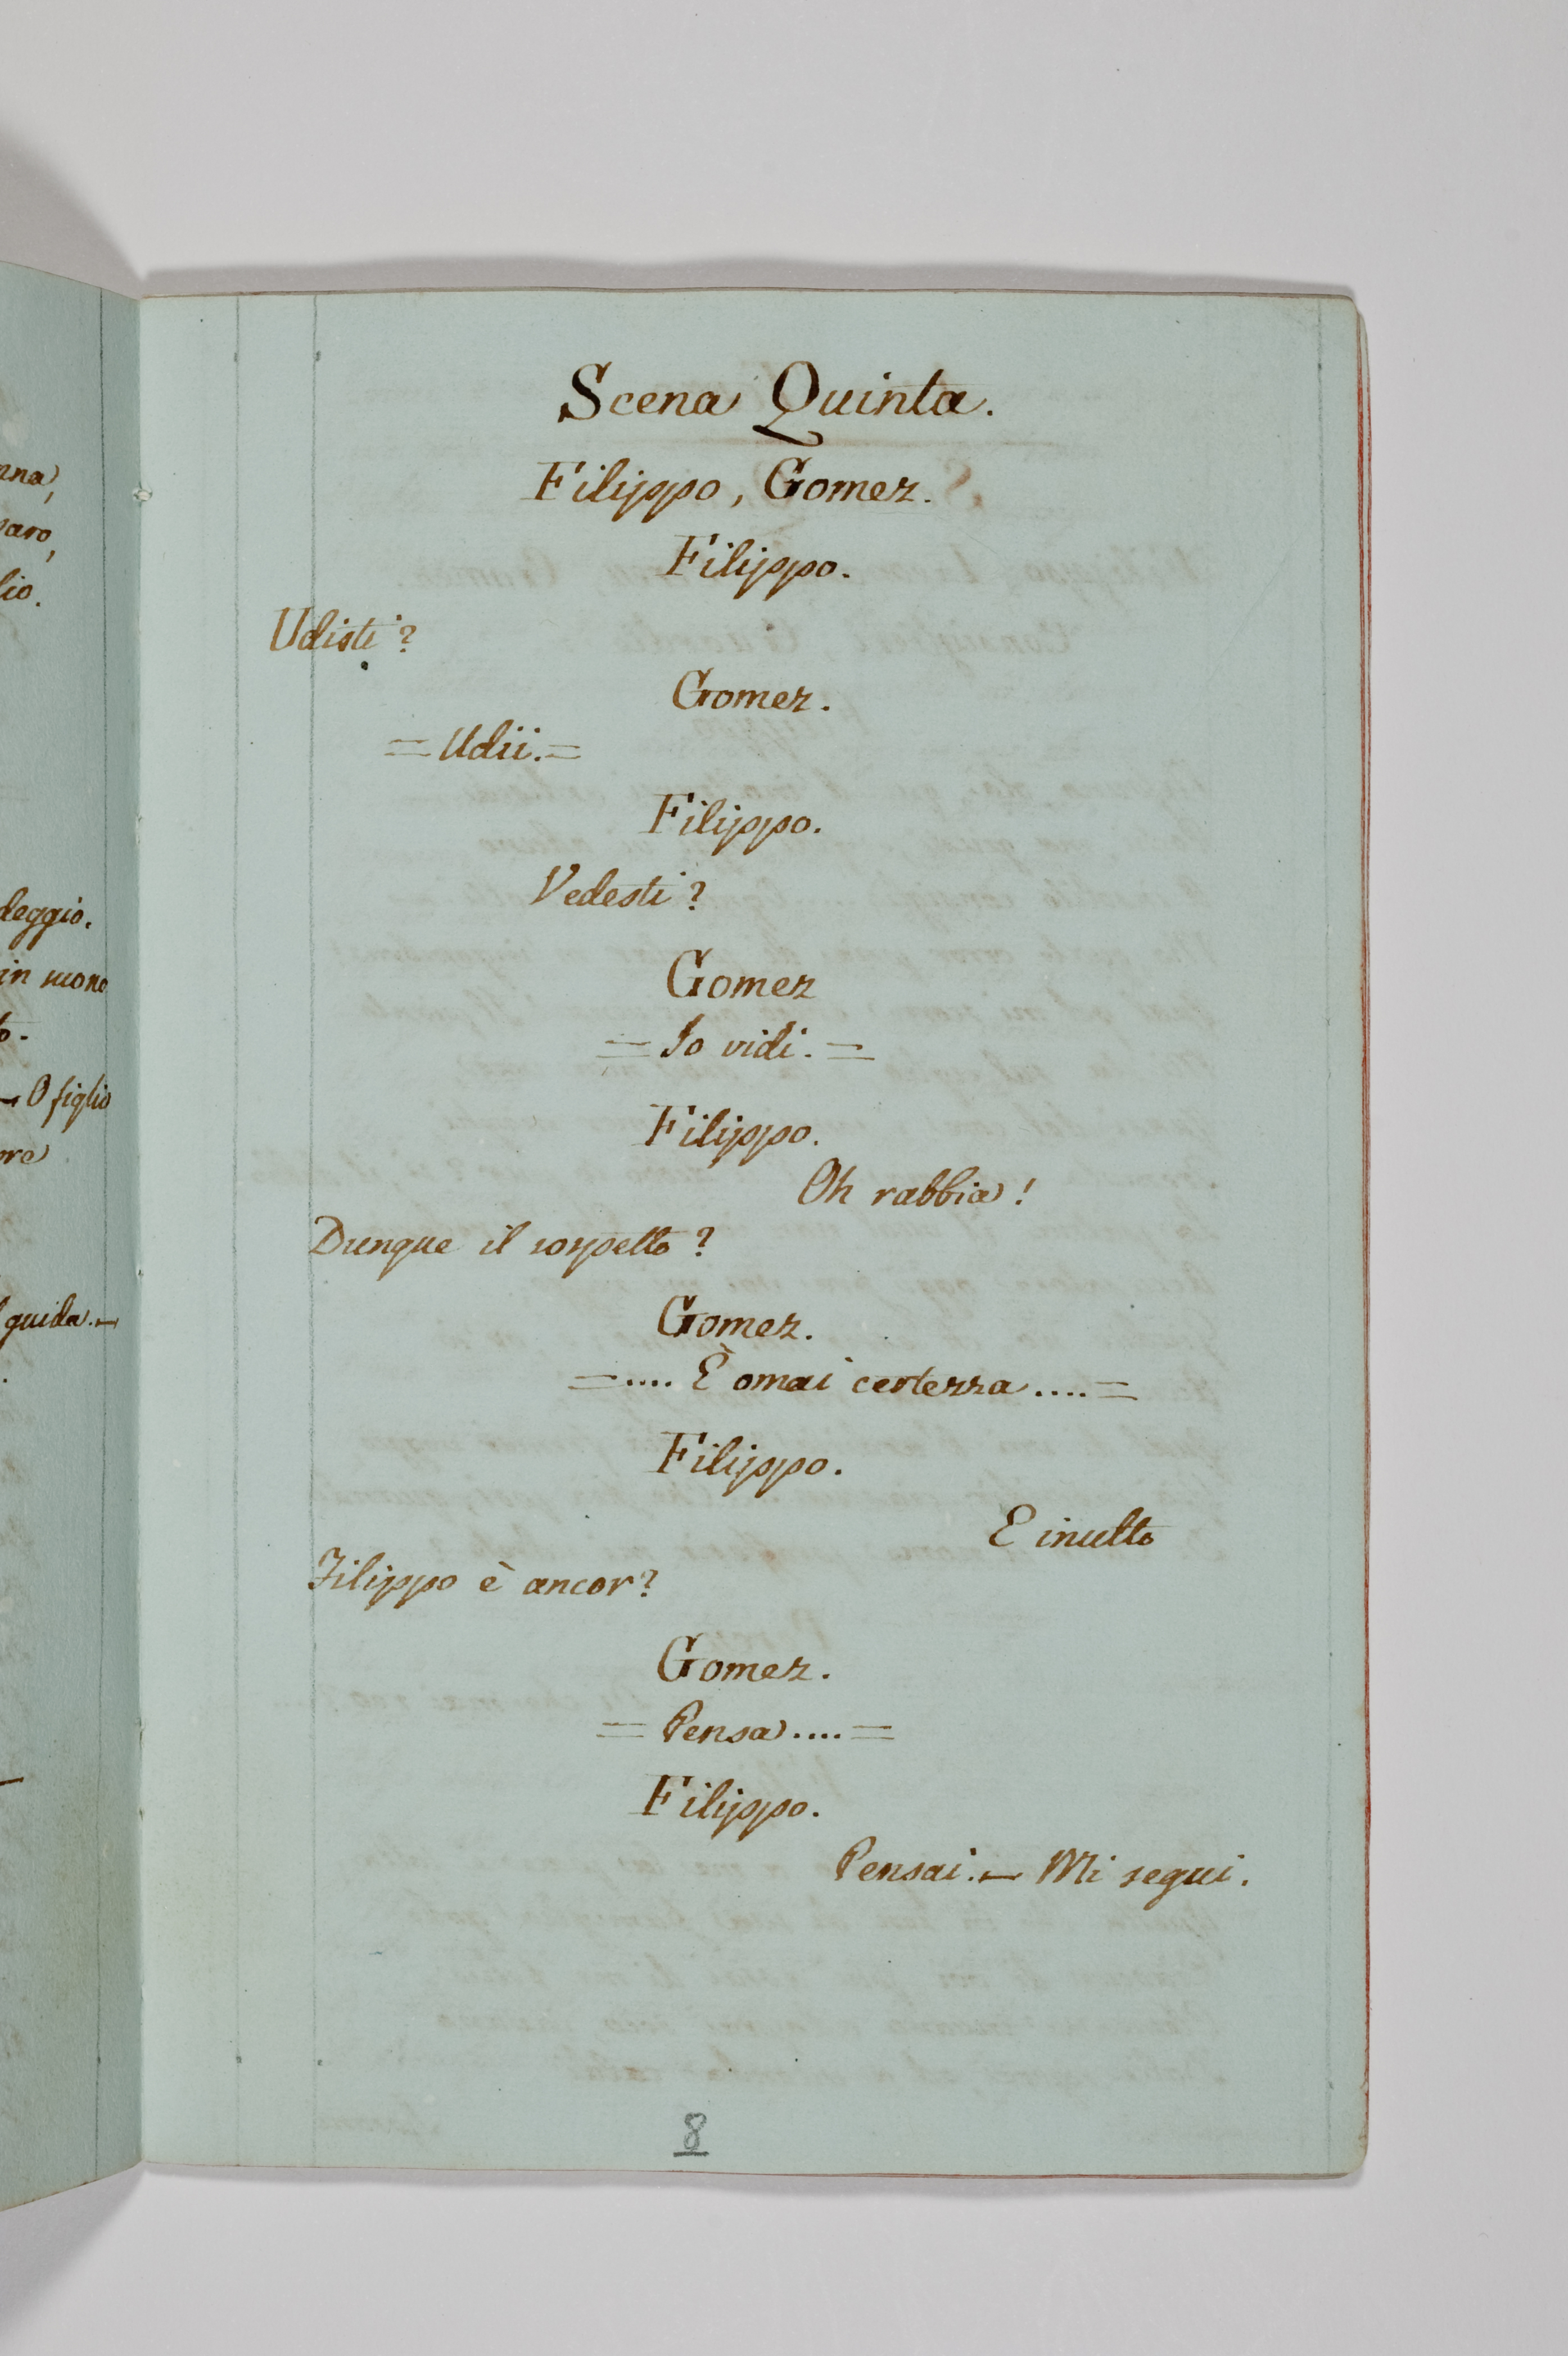 nna,
saro,
lio.
deggio.
in mone
to.
— O figlio
ore
guida. —
Scena Quinta.
Filippo, Gomez.
Filippo.
Udisti?
Gomez.
= Udii. =
Filippo.
Vedesti?
Gomez
= Io vidi. =
Filippo.
Oh rabbia!
Dunque il sospetto?
Gomez.
= .... È omai certezza .... =
Filippo.
E inulto
Filippo è ancor?
Gomez.
= Pensa .... =
Filippo.
Pensai. — Mi segui.
8